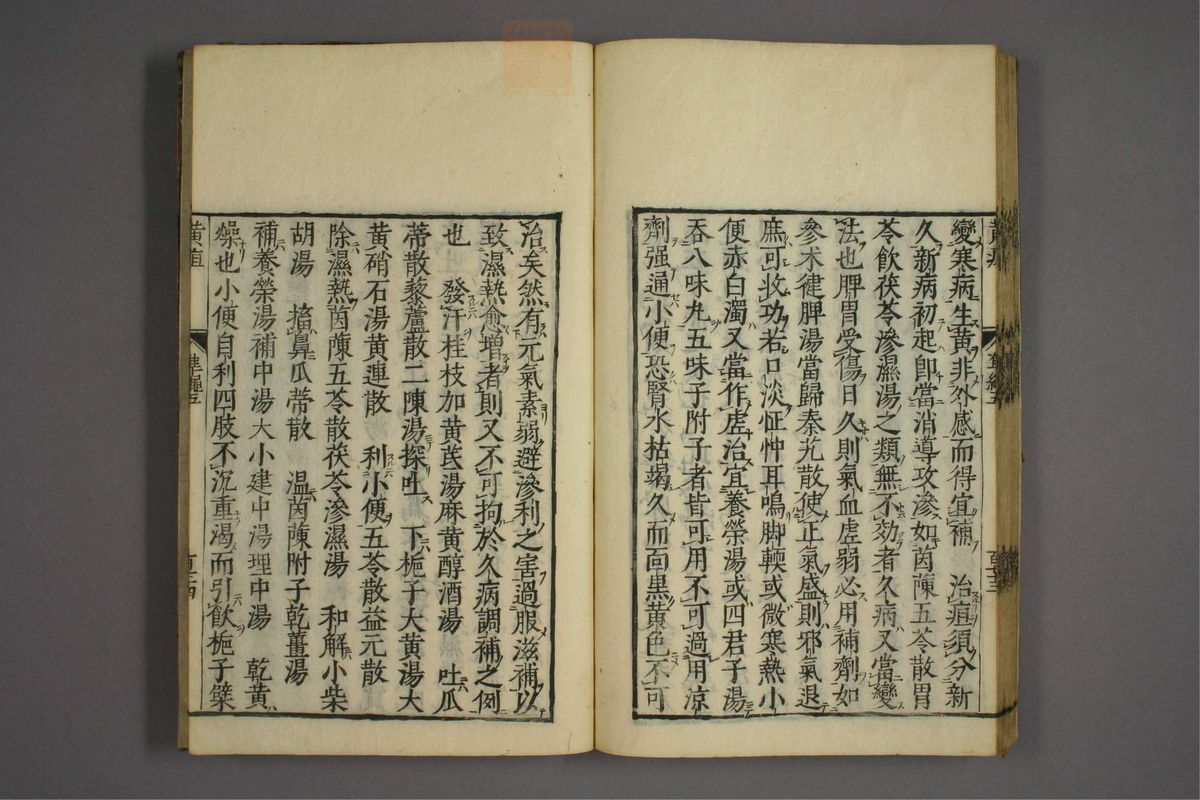 變寒病生黃非外感而得宜補　治疸須分新
久新病初起即當消導攻滲如茵蔯五苓散胃
苓飲茯苓滲濕湯之類無不効者久病又當變
法也脾胃受傷日久則氣血虛弱必用補劑如
參朮健脾湯當歸秦艽散使正氣盛則邪氣退
庶可收功若口淡怔忡耳鳴脚輭或微寒熱小
便赤白濁又當作虛治宜養榮湯或四君子湯
吞八味丸五味子附子者皆可用不可過用涼
劑强通小便恐腎水枯竭久而面黒黃色不可
治矣然有元氣素弱避滲利之害過服滋補以
致濕熱愈增者則又不可拘於久病調補之例
也　發汗桂枝加黃茋湯麻黃醇酒湯　吐瓜
蒂散藜蘆散二陳湯探吐　下梔子大黃湯大
黃硝石湯黃連散　利小便五苓散益元散
除濕熱茵蔯五苓散茯苓滲濕湯　和解小柴
胡湯　搐鼻瓜蒂散　溫茵蔯附子乾薑湯
補養榮湯補中湯大小建中湯理中湯　乾黃
燥也小便自利四肢不沉重渴而引飲梔子檗
黃疸